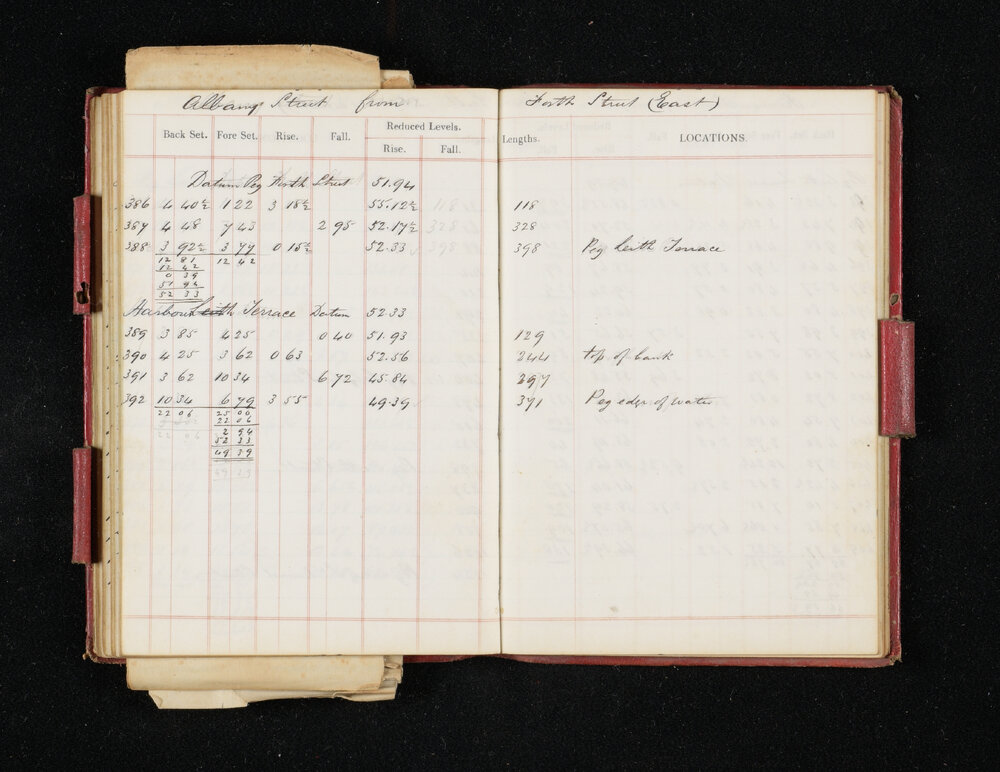 Albany Street from Forth Street (East)
Back Set. Fore Set. Rise. Fall. Reduced Levels. Lengths. LOCATIONS.
Rise. Fall.
Datum Peg Forth Street 51.94
386 4 40½ 1 22 3 18½ 55.12½ 118
387 4 48 7 43 2 95 52.17½ 328
388 3 92½ 3 77 0 15½ 52.33 398 Peg Leith Terrace
12 81 12 42
12 42
0 39
51 94
52 33
Harbour Terrace Datum 52.33
389 3 85 4 25 0 40 51.93 129
390 4 25 3 62 0 63 52.56 244 top of bank
391 3 62 10 34 6 72 45.84 297
392 10 34 6 79 3 55 49.39 391 Peg edge of water
22 06 25 00
22 06
2 94
52 33
22 06 49 39
49 39